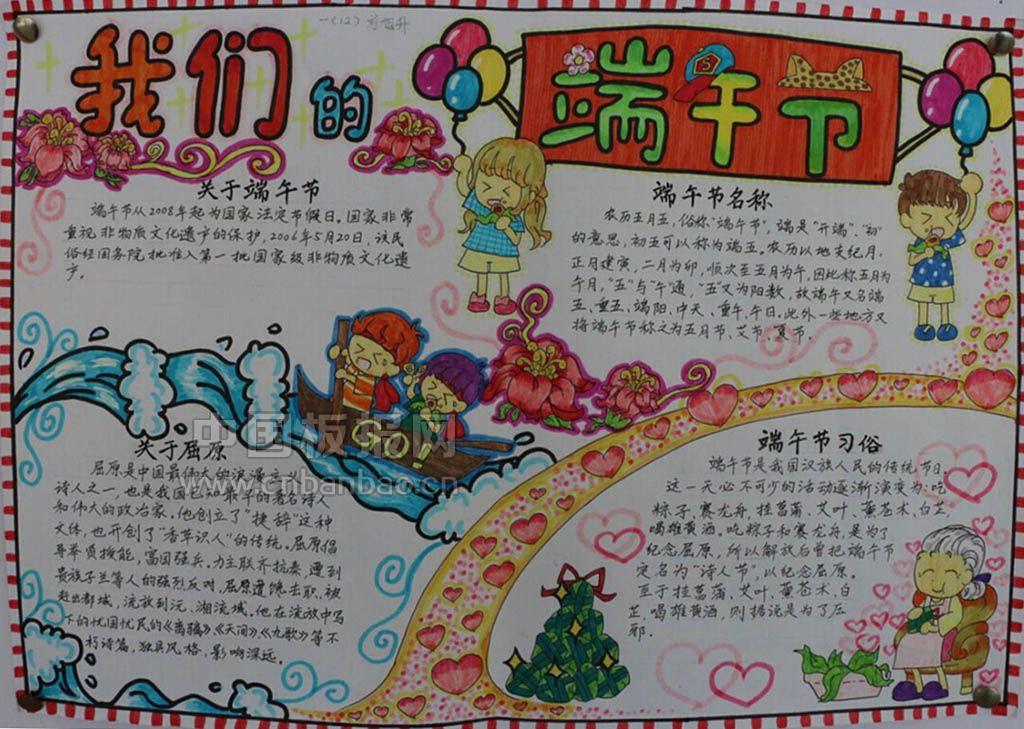 一(12)
我们的
端午节
S
关于端午节
端午节从2008年起为国家法定节假日。国家非常
重视非物质文化遗产的保护，2006年5月20日，该民
俗经国务院批准入第一批国家级非物质文化遗
产。
端午节名称
农历五月五，俗称"端午节"，端是"开端"、"初"
的意思，初五可以称为端五。农历以地支纪月，
正月建寅，二月为卯，顺次至五月为午，因此称五月为
午月，"五"与"午"通，"五"又为阳数，故端午又名端
五、重五、端阳、中天、重午、午日。此外一些地方又
将端午节称之为五月节、艾节、夏节。
关于屈原
屈原是中国最伟大的浪漫主
诗人之一，也是我国已知最早的著名诗人
和伟大的政治家。他创立了"楚辞"这种
文体，也开创了"香草识人"的传统。屈原倡
导举贤授能，富国强兵，力主联齐抗秦，遭到
贵族子兰等人的强烈反对，屈原遭馋去职，被
赶出都城，流放到沅、湘流域，他在流放中写
下的忧国忧民的《离骚》《天问》《九歌》等不
朽诗篇，独具风格，影响深远。
端午节习俗
端午节是我国汉族人民的传统节日。
这一天必不可少的活动逐渐演变为：吃
粽子、赛龙舟、挂菖蒲、艾叶、薰苍术、白芷、
喝雄黄酒。吃粽子和赛龙舟，是为了
纪念屈原，所以解放后曾把端午节
定名为"诗人节"，以纪念屈原。
至于挂菖蒲、艾叶、薰苍术，白
芷，喝雄黄酒，则据说是为了压
邪。
中国板报网
www.cnbanbao.cn
中国板报网